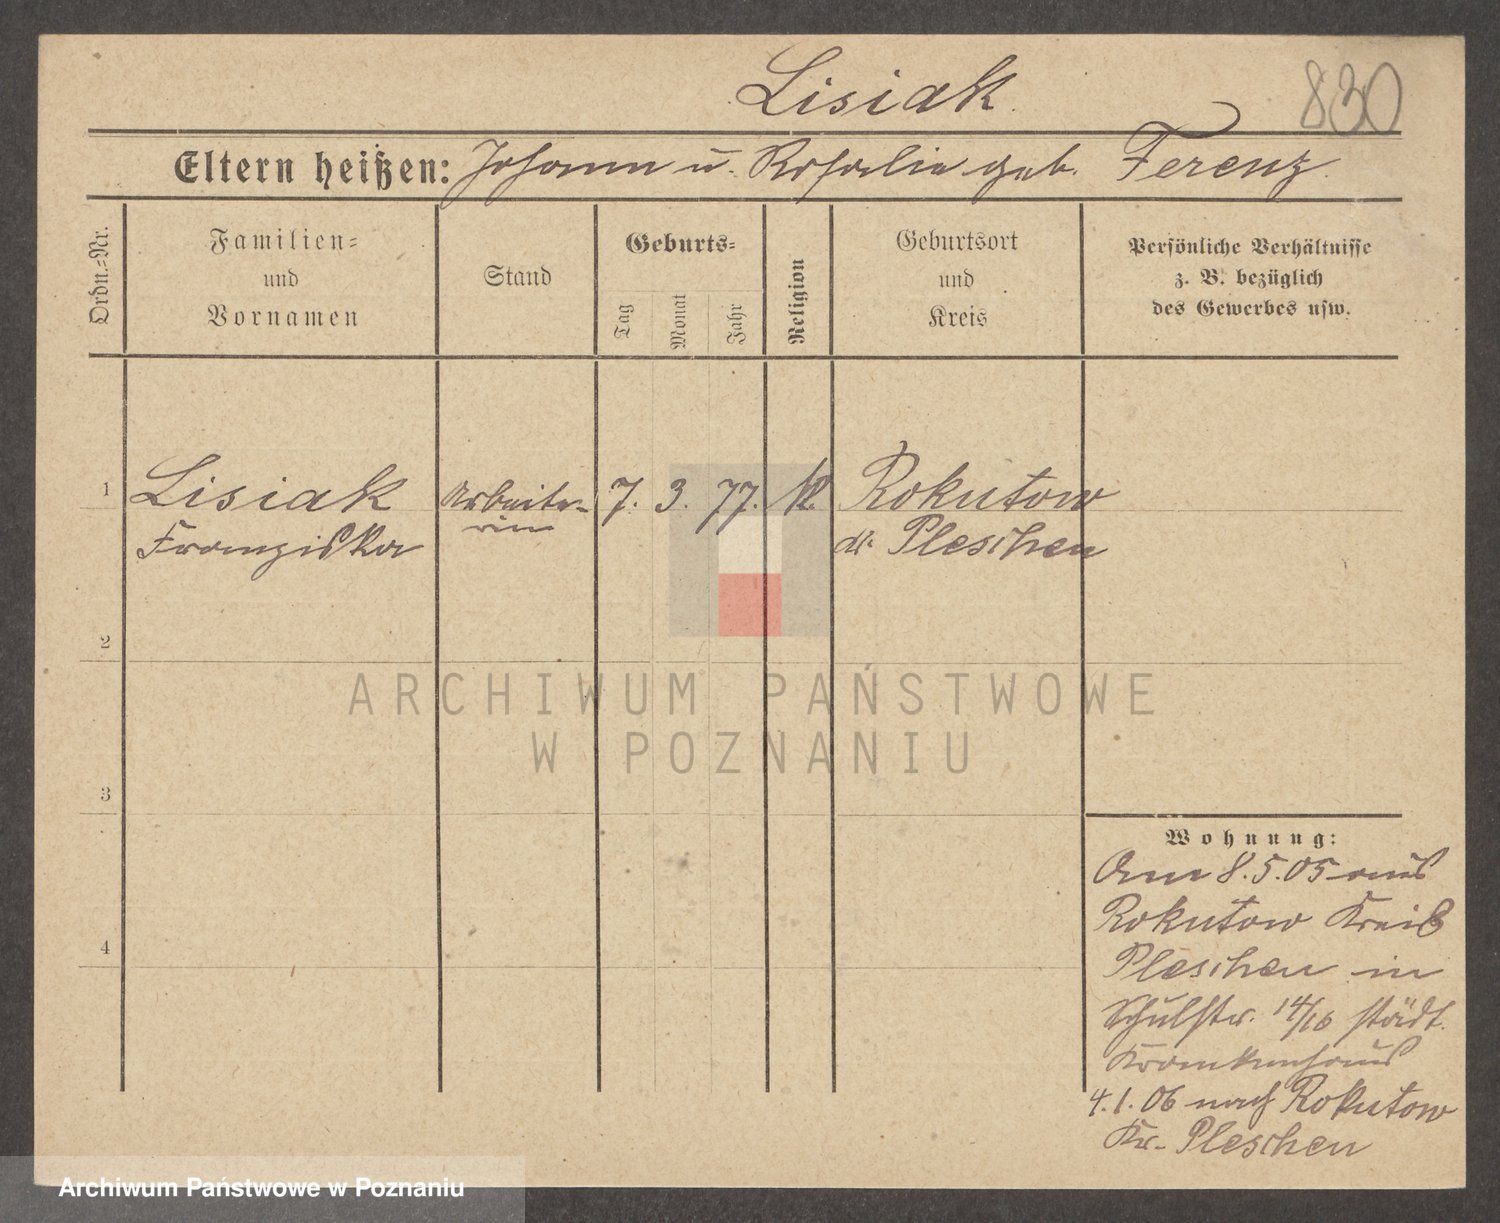 Lisiak
830
Eltern heißen: Johann u. Rosalie geb. Ferenz
Ordn.-Nr.
Familien-
und
Vornamen
Stand
Geburts-
Tag
Monat
Jahr
Religion
Geburtsort
und
Kreis
Persönliche Verhältnisse
z. B. bezüglich
des Gewerbes usw.
1
Lisiak
Franziska
Arbeite-
rin
7. 3. 77. K.
Rokutow
Pleschen
2
3
4
ARCHIWUM PAŃSTWOWE
W POZNANIU
Wohnung:
Am 8.5.05 aus
Rokutow Kreis
Pleschen in
Schulstr. 14/16 städt.
Krankenhaus
4.1.06 nach Rokutow
Kr. Pleschen
Archiwum Państwowe w Poznaniu